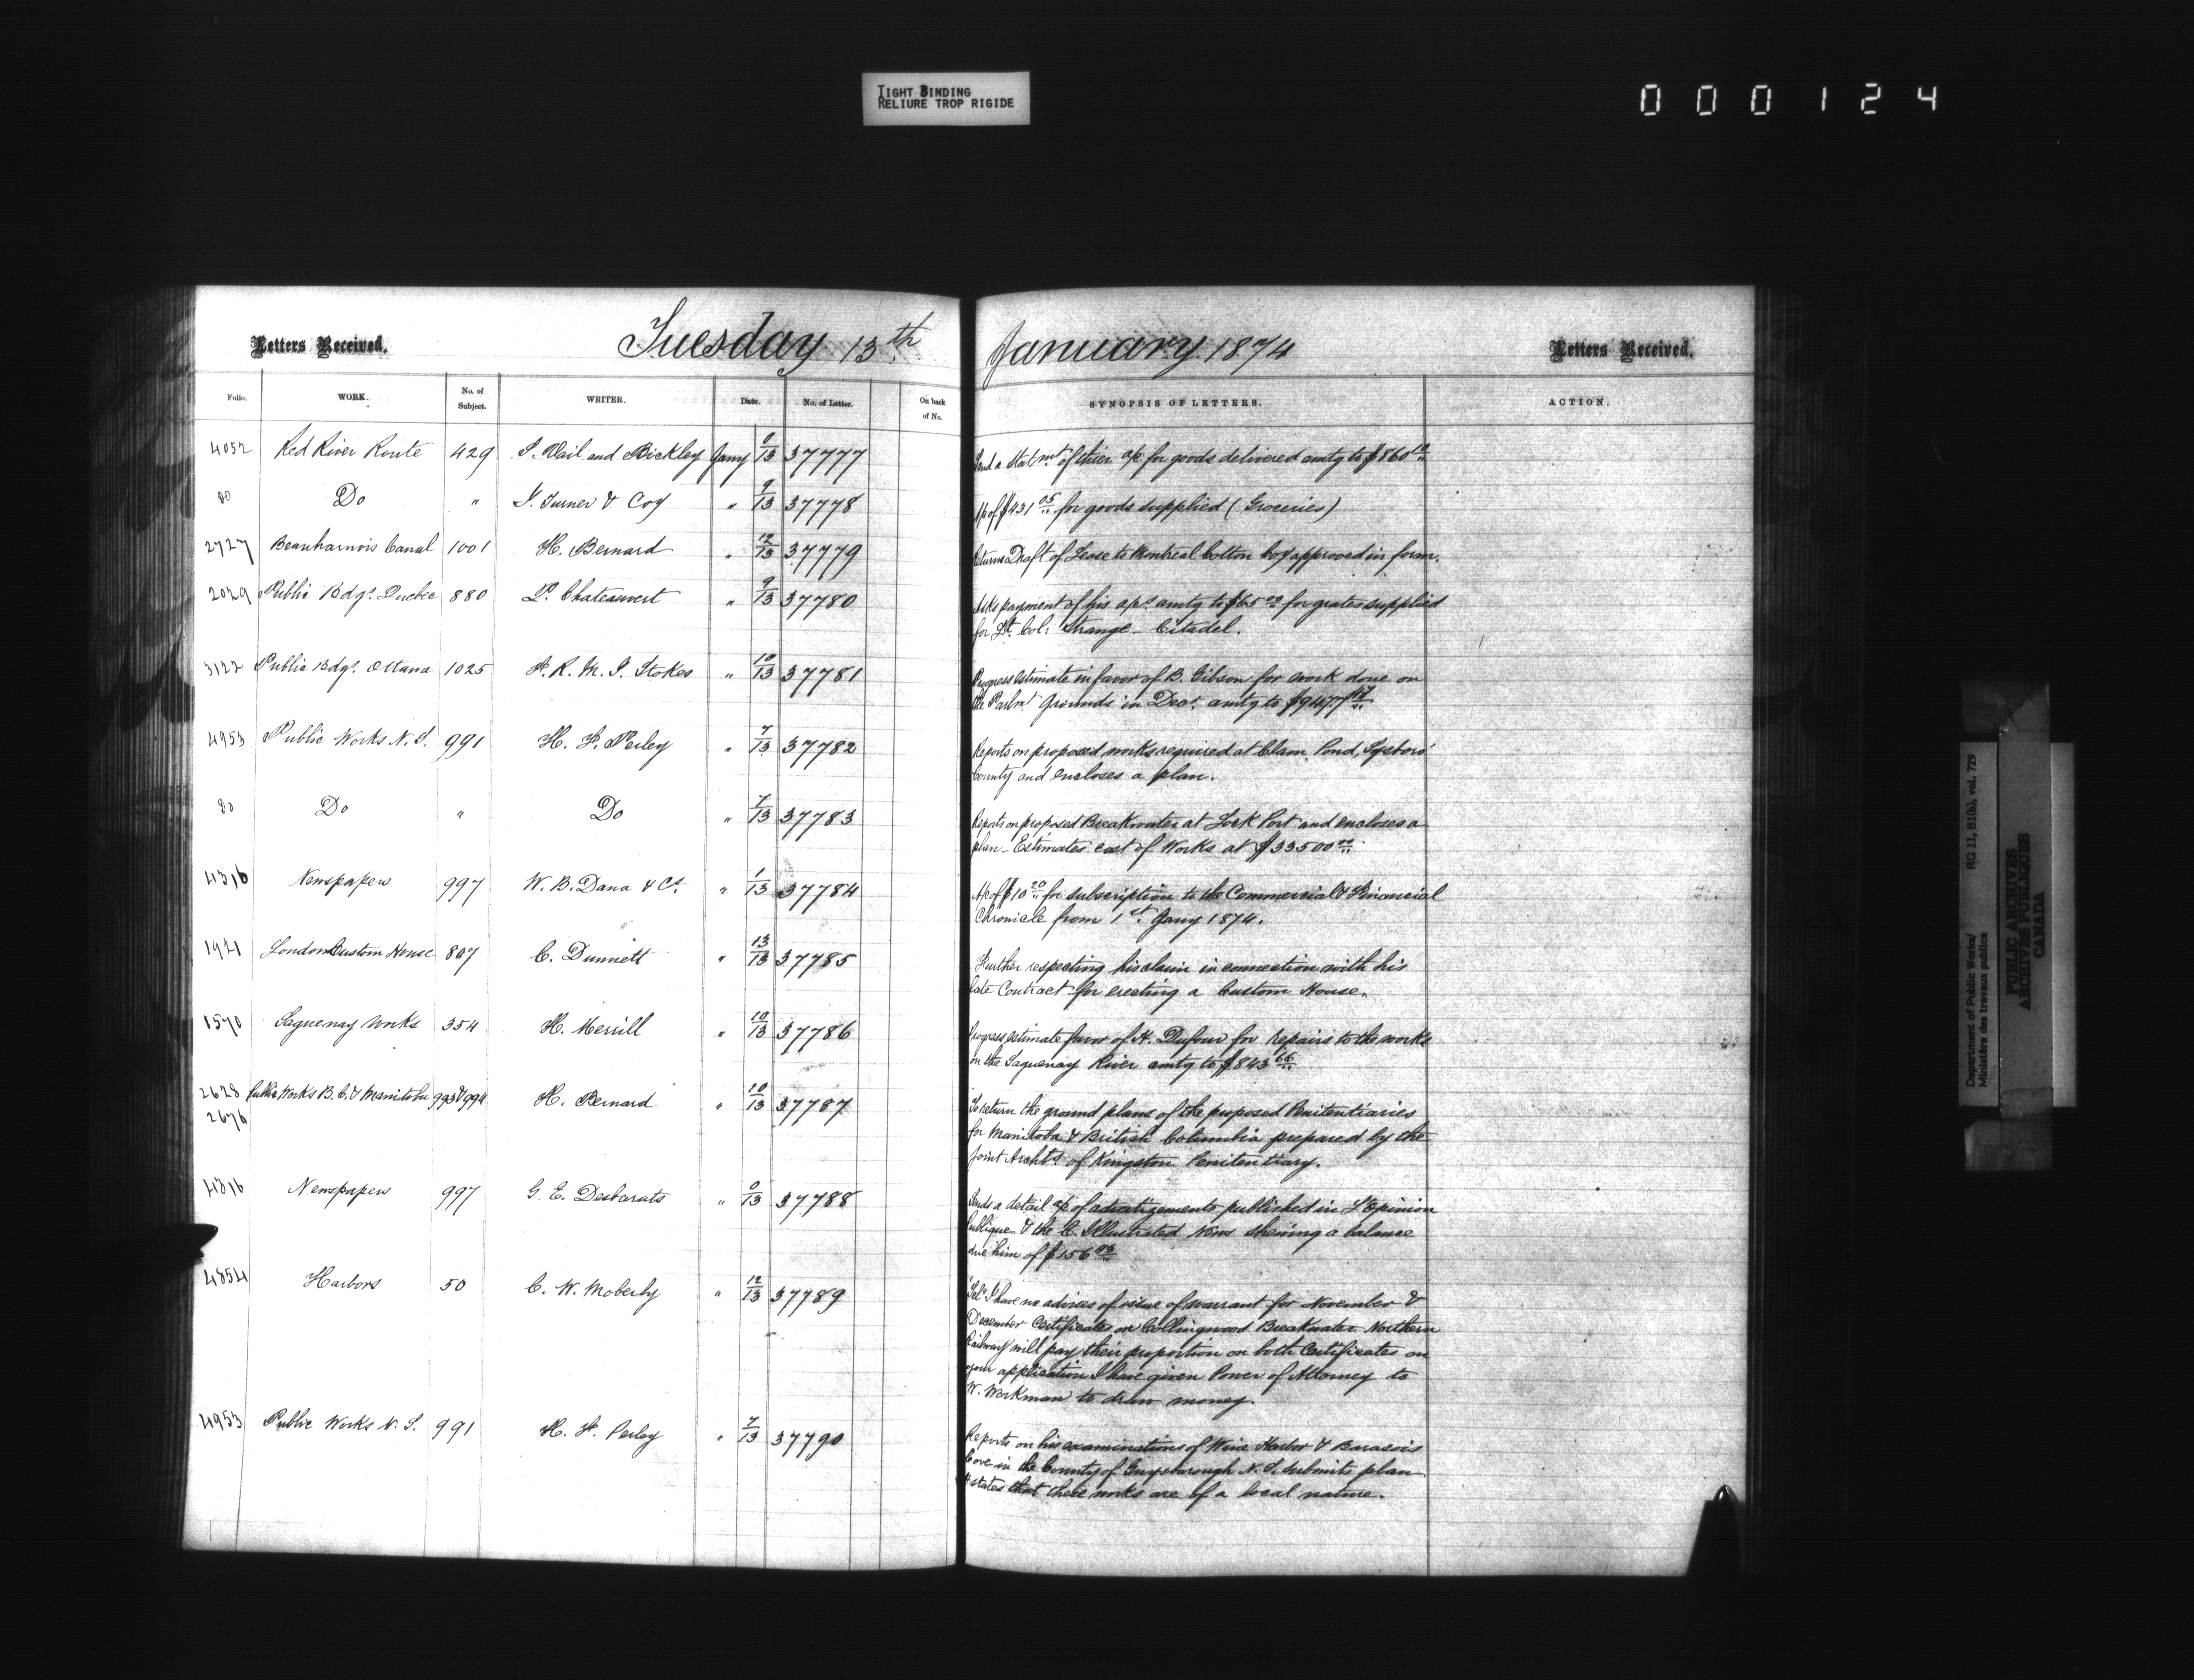 TIGHT BINDING
RELIURE TROP RIGIDE
000124
Letters Received.
Tuesday 13th
January 1874
Letters Received.
Folio. WORK. No. of Subject. WRITER. Date. No. of Letter. On back of No. SYNOPSIS OF LETTERS. ACTION.
4052 Red River Route 429 Vail and Bickley Jany 9/13 37777 Send a Statmt of thier a/c for goods delivered amtg to $860
do Do " J. Turner & Coy " 9/13 37778 A/c of $431 05 for goods supplied (Groceries)
2727 Beauharnois Canal 1001 H. Bernard " 12/13 37779 Returns Draft of Lease to Montreal Cotton Coy approved in form.
2029 Public Bdgs. Quebec 880 P. Chateauvert " 9/13 37780 Asks payment of his a/cs amtg to $65 00 for grates supplied
for Lt. Col: Strange - Citadel.
3122 Public Bdgs. Ottawa 1025 F. R. M. S. Stokes " 10/13 37781 Progress estimate in favor of B. Gibson for work done on
the Parlmt Grounds in Decr. amtg to
4953 Public Works N. S. 991 H. F. Perley " 7/13 37782 Reports on proposed works required at Clam Pond, Gysboro'
County and encloses a plan.
do Do " Do " 7/13 37783 Reports on proposed Breakwater at Lock Port and encloses a
plan - Estimates cost of Works at $33500 00
4316 Newspapers 997 W. B. Dana & Co. " 1/13 37784 A/c of $10 20 for subscription to the Commercial & Financial
Chronicle from 1st. Jany 1874.
1921 London Custom House 807 C. Dunnett " 13/13 37785 Further respecting his claim in connection with his
late Contract for erecting a Custom House.
1570 Saguenay Works 354 H. Merrill " 10/13 37786 Progress estimate favor of H. Dufour for repairs to the works
on the Saguenay River amtg to $843 66
2628 Public Works B.C. & Manitoba 993 & 994 H. Bernard " 10/13 37787 To return the ground plans of the proposed Penitentiaries
2676 for Manitoba & British Columbia prepared by the
Joint Archts of Kingston Penitentiary.
4316 Newspapers 997 G. E. Desbarats " 0/13 37788 Sends a detail a/c of advertizements published in L'Opinion
Publique & the C. Illustrated News shewing a balance
due him of $156
4854 Harbors 50 C. W. Moberly " 12/13 37789 "Tel" I have no advices of issue of warrant for November &
December Certificate on Collingwood Breakwater Northern
Railway will pay their proportion on both Certificates on
your application I have given Power of Attorney to
W. Workman to draw money.
4953 Public Works N. S. 991 H. F. Perley " 7/13 37790 Reports on his examinations of Wine Harbor & Barasois
Cove in the County of Guysborough N. S. submits plan
& states that these works are of a local nature.
Department of Public Works/
Ministère des travaux publics
RG 11, B1(b), vol. 729
PUBLIC ARCHIVES
ARCHIVES PUBLIQUES
CANADA